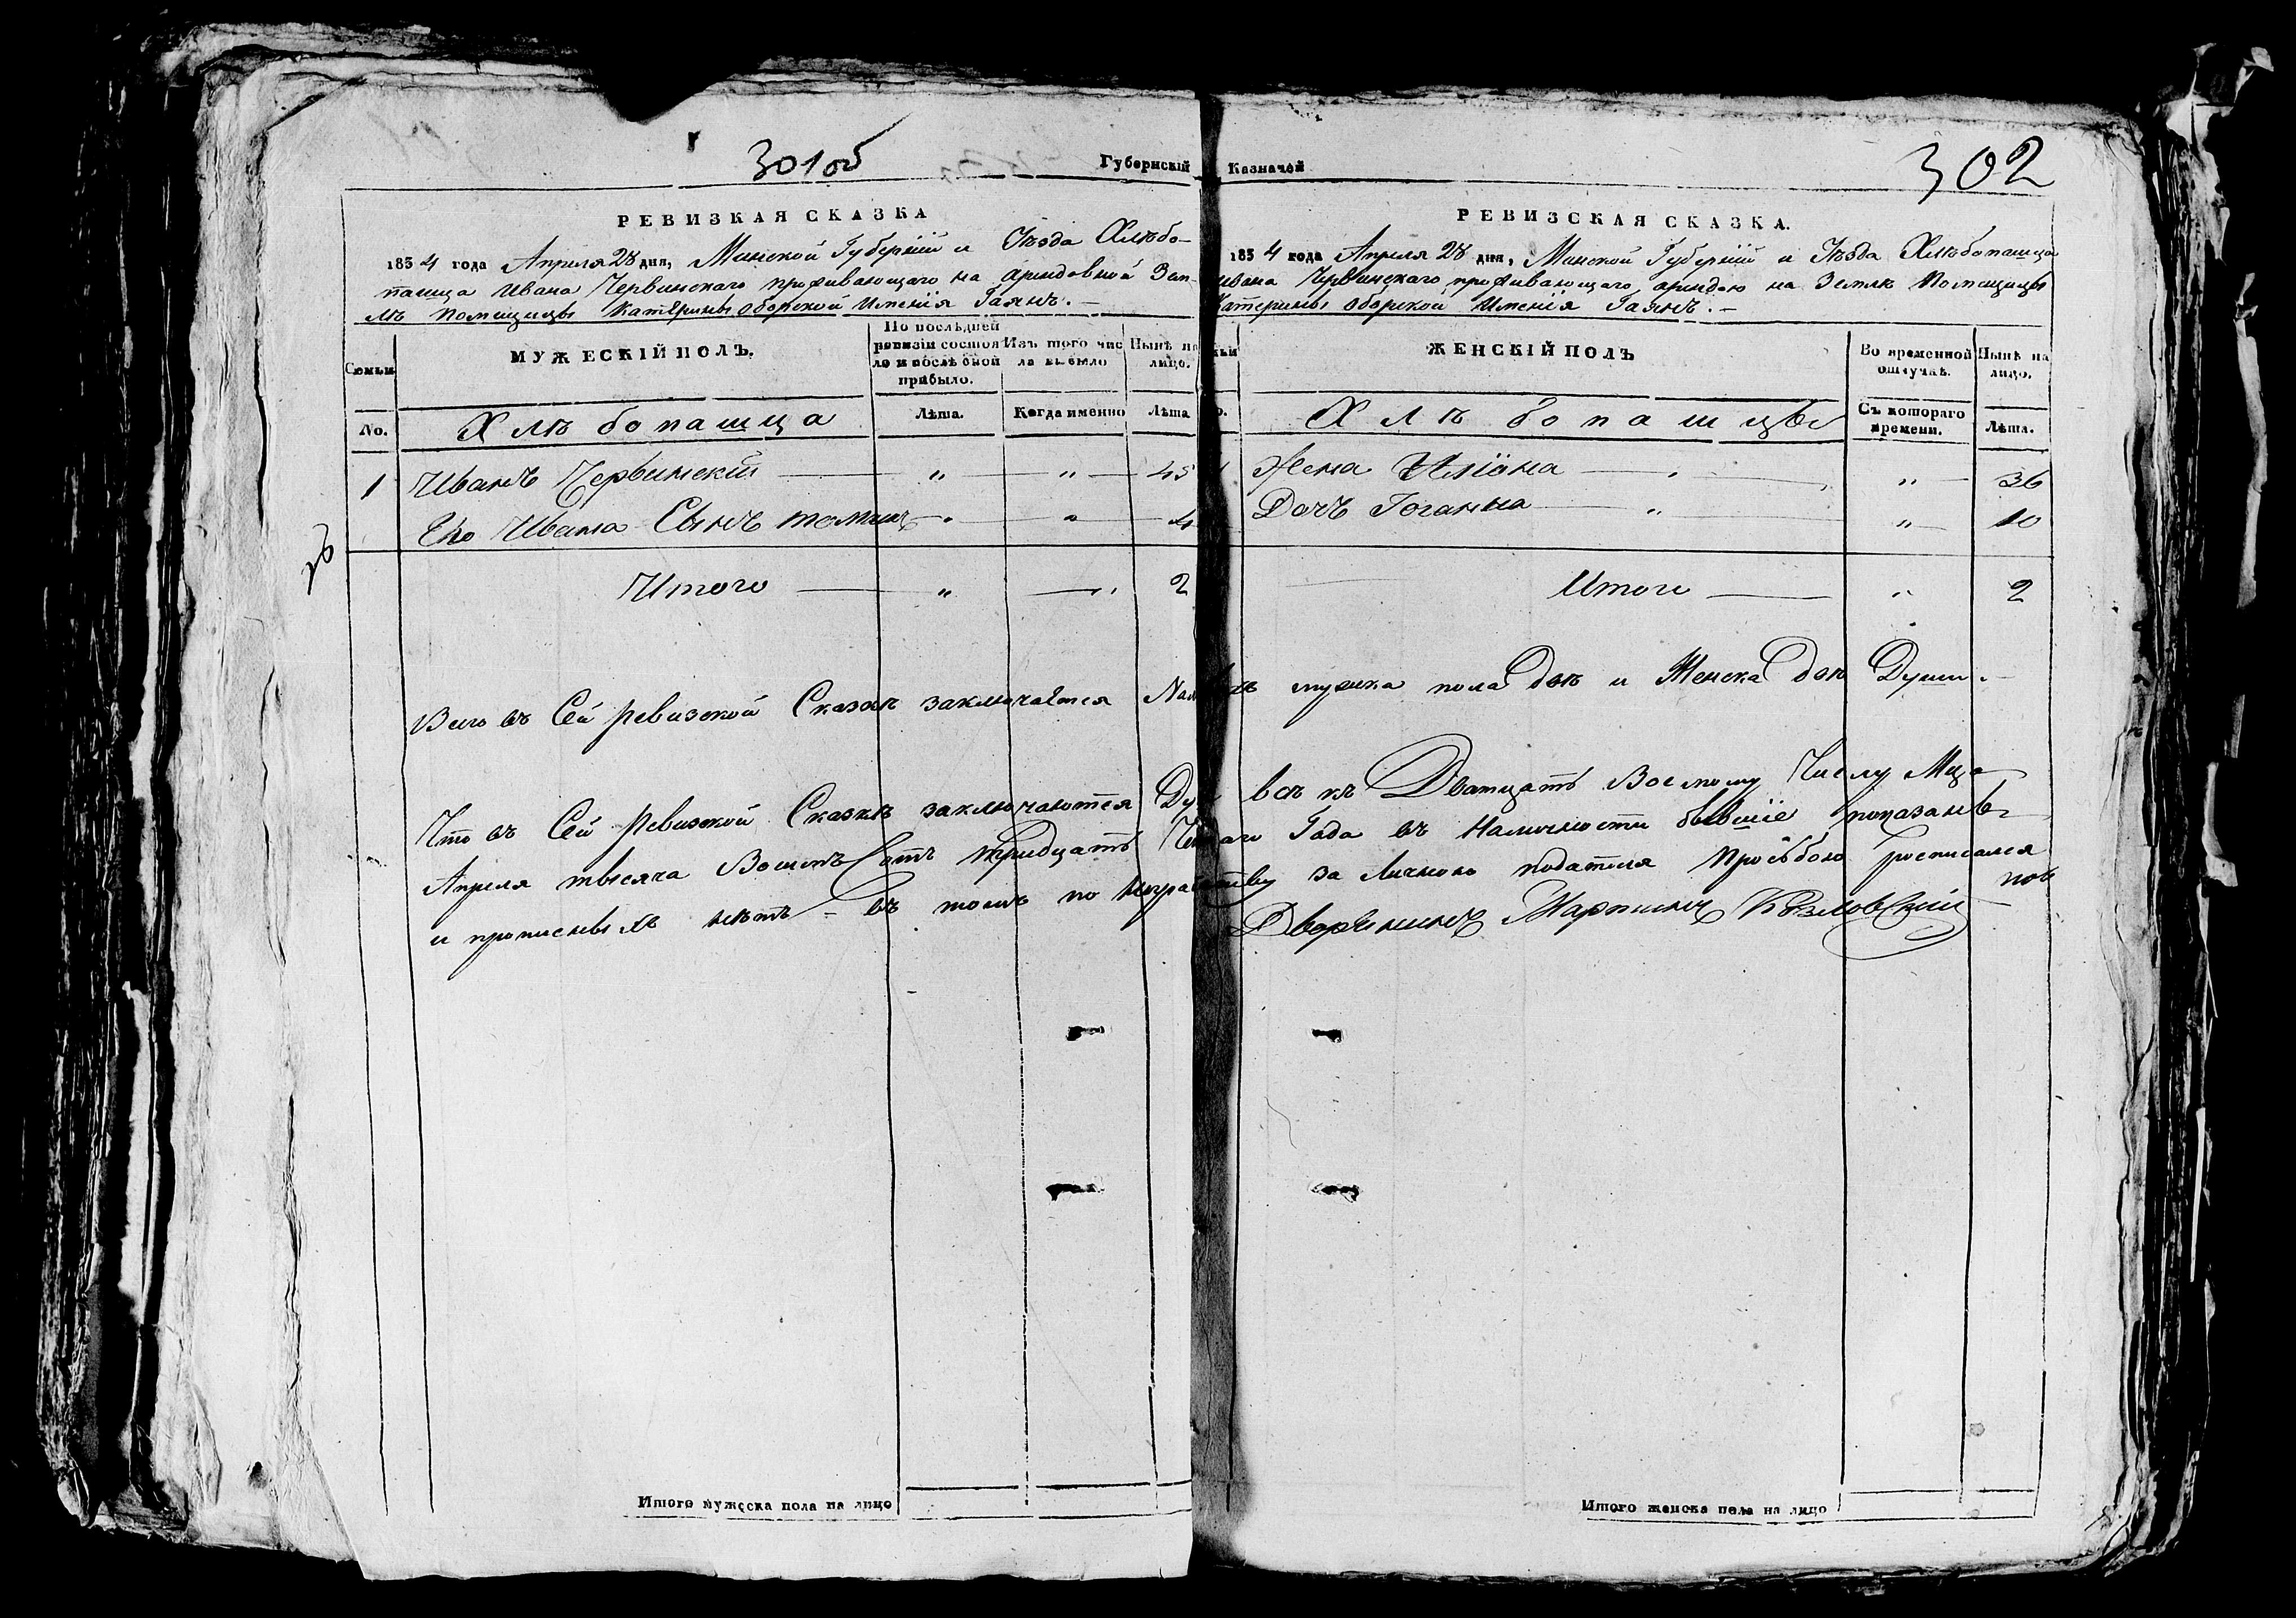 301об
Губернскій
РЕВИЗКАЯ СКАЗКА
1834 года Апреля 28 дня, Минской Губерніи и Уѣзда Хлѣбо-
пашца Ивана Червинскаго проживающаго на арендовной Зем-
лѣ Помещицы Катерины Оборской Имѣнія Гаянъ. —
Семьи
МУЖЕСКІЙ ПОЛЪ.
По послѣдней ревизіи состояло и послѣ оной прибыло.
Изъ того числа выбыло
Нынѣ на лицо.
No.
Хлѣбопашца
Лѣта.
Когда именно
Лѣта
1 Иванъ Червинскій — „ — „ — 45
Его Ивана Сынъ томашъ — „ — „ — 4
26
Итого — „ — „ 2
Казначей
302
РЕВИЗСКАЯ СКАЗКА.
1834 года Апреля 28 дня, Минской Губерніи и Уѣзда Хлѣбопашца
Ивана Червинскаго проживающаго арендою на Землѣ Помещицы
Катерины Оборской Имѣнія Гаянъ. —
ЖЕНСКІЙ ПОЛЪ
Во временной отлучкѣ.
Нынѣ на лицо.
Хлѣбопашцы
Съ котораго времени.
Лѣта.
1 Жена Уліана — „ — „ — 36
Дочъ Іоганна — „ — „ — 10
Итого — „ 2
Всего въ Сей ревизской Сказкѣ заключается мужска пола двѣ и Женска двѣ Души. —
Что въ Сей Ревизской Сказкѣ заключаются всѣ къ Дватцатъ Восмому Числу Мца
Апреля тысяча Восемъ Сотъ тридцать Года въ Наличности бывшіе показаны
и прописныхъ нѣтъ - въ томъ по неграмотству за Личною подателя Прозбою росписался
Дворянинъ Мартинъ Козловскій
Итого мужеска пола на лицо
Итого женска пола на лицо